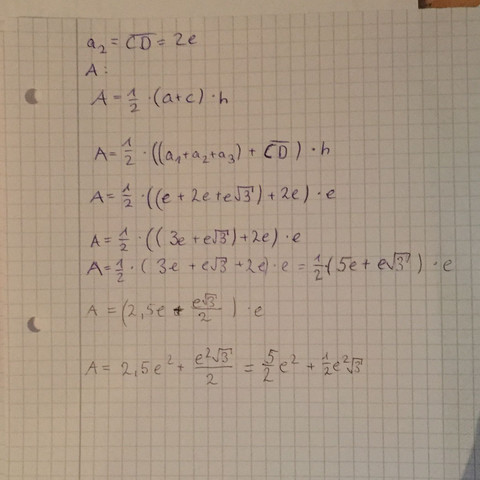 a₂ = C̅D̅ = 2e
A:
A = 1/2 · (a+c) · h
A = 1/2 · ((a₁+a₂+a₃) + C̅D̅) · h
A = 1/2 · ((e + 2e + e√3) + 2e) · e
A = 1/2 · ((3e + e√3) + 2e) · e
A = 1/2 · (3e + e√3 + 2e) · e = 1/2 · (5e + e√3) · e
A = (2,5e + e√3/2) · e
A = 2,5e² + e²√3/2 = 5/2 e² + 1/2 e²√3